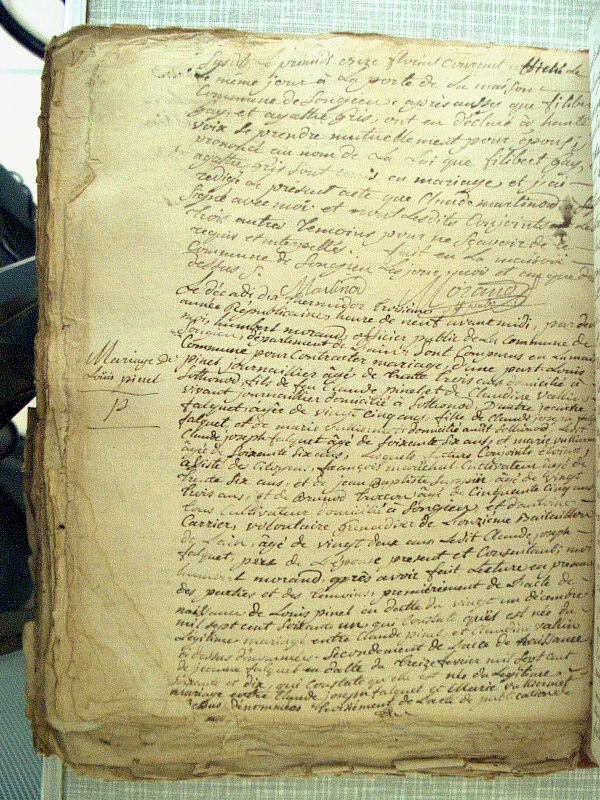 le même jour à La porte de la maison
Commune de Songieu, après aussy que filibert
gay, et agatthe gris ont eu déclaré à haute
voix se prendre mutuellement pour époux,
prononcé au nom de La Loi que filibert gay,
agatthe gris sont unis en mariage et j'ai
redigé le présent acte que Claude martinod
signé avec moi et non Lesdits Conjoints
trois autres témoins pour ne sçavoir de ce
requis et interpellés. fait en La maison
Commune de Songieu Les jour, mois et an que
dessus /.
Martinod Morand
Mariage de
Louis pinel
Le décadi dix thermidor troisième
année Républicaine, heure de neuf avant midi, par de
moi, humbert morand, officier public de La Commune de
Songieu, département de L'ain, Sont Comparus en La maison
Commune pour Contracter mariage, d'une part Louis
pinel journaillier âgé de trente trois ans domicilié à
Sothonod, fils de feu Claude pinel et de Claudine vallin
vivant journaillier domicilié à Sothonod, d'autre jeanne
falquet, agée de vingt Cinq ans, fille de Claude joseph
falquet, et de marie domicilié audit Sothonod Ledit
Claude joseph falquet âgé de Soixante Six ans, et marie
âgée de Soixante Six ans, Lesquels futurs Conjoints
assisté de Citoyens, françois Cultivateur âgé de
trente Six ans, et de jean Baptiste âgé de vingt
trois ans, et de Brunod âgé de Cinquante Cinq ans
tous Cultivateur domicilié à Songieu, et d'antoine
Carrier, volontaire, Grenadier de L'onzième Bataillon
de L'ain, âgé de vingt deux ans, Ledit Claude joseph
falquet, père de L'épouse present et Consentant, moi
humbert morand, après avoir fait Lecture en presence
des parties et des temoins, premièrement de L'acte de
naissance de Louis pinel en datte du vingt un décembre
mil sept cent soixante un, qui Constate qu'il est né du
Légitime mariage entre Claude pinel et Claudine vallin
Ci dessus dénommés. Secondement de L'acte de naissance
de jeanne falquet en datte du treize fevrier mil sept cent
soixante et dix, qui Constate qu'elle est née du Légitime
mariage entre Claude joseph falquet et Marie
dessus dénommés troisièment de L'acte de publication